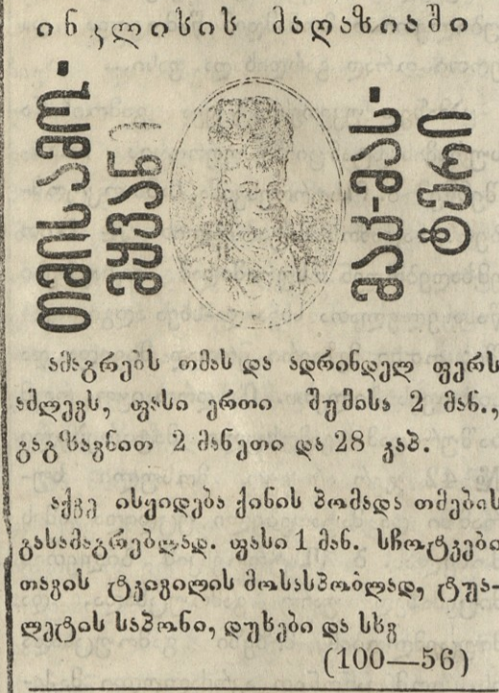 ინგლისის მაღაზიაში
თმის ამო-
მყვანი
მაკ-მას-
ტერი
ამაგრებს თმას და ადრინდელ ფერს
აძლევს, ფასი ერთი შუშისა 2 მან.,
გაგზავნით 2 მანეთი და 28 კაპ.
აქვე ისყიდება ქინის პომადა თმების
გასამაგრებლად. ფასი 1 მან. სჩოტკები
თავის ტკივილის მოსასპობლად, ტუა-
ლეტის საპონი, დუხები და სხვ
(100—56)